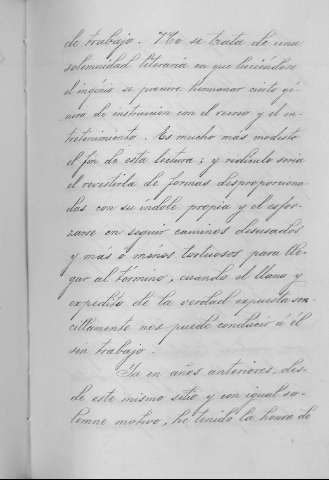 de trabajo. No se trata de una
solemnidad literaria en que luciéndose
el ingénio, se procure hermanar cierto gé-
nero de instruccion con el recreo y el en-
tretenimiento. Es mucho más modesto
el fin de esta lectura; y ridículo seria
el revestirla de formas desproporciona-
das con su índole propia y el esfor-
zarse en seguir caminos desusados
y más ó ménos tortuosos para lle-
gar al término, cuando el llano y
expedito de la verdad expuesta sen-
cillamente nos puede conducir á él
sin trabajo.
Ya en años anteriores, des-
de este mismo sitio y con igual so-
lemne motivo, he tenido la honra de